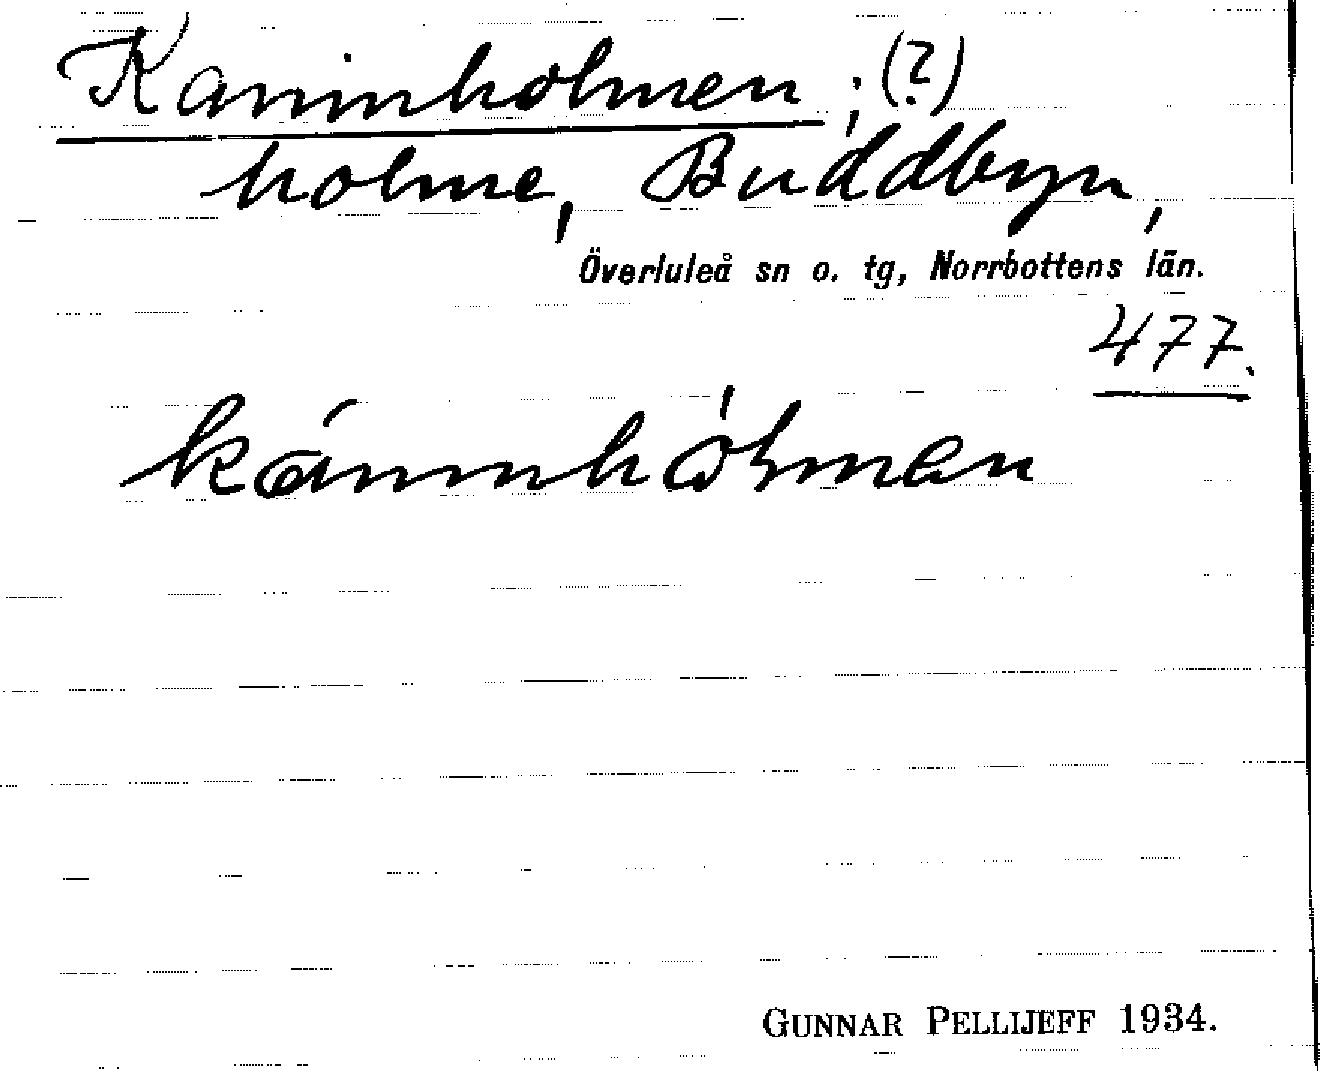 Kaninholmen; (?)
holme, Buddbyn,
Överluleå sn o. tg, Norrbottens län.
477.
káninhólmen
GUNNAR PELLIJEFF 1934.